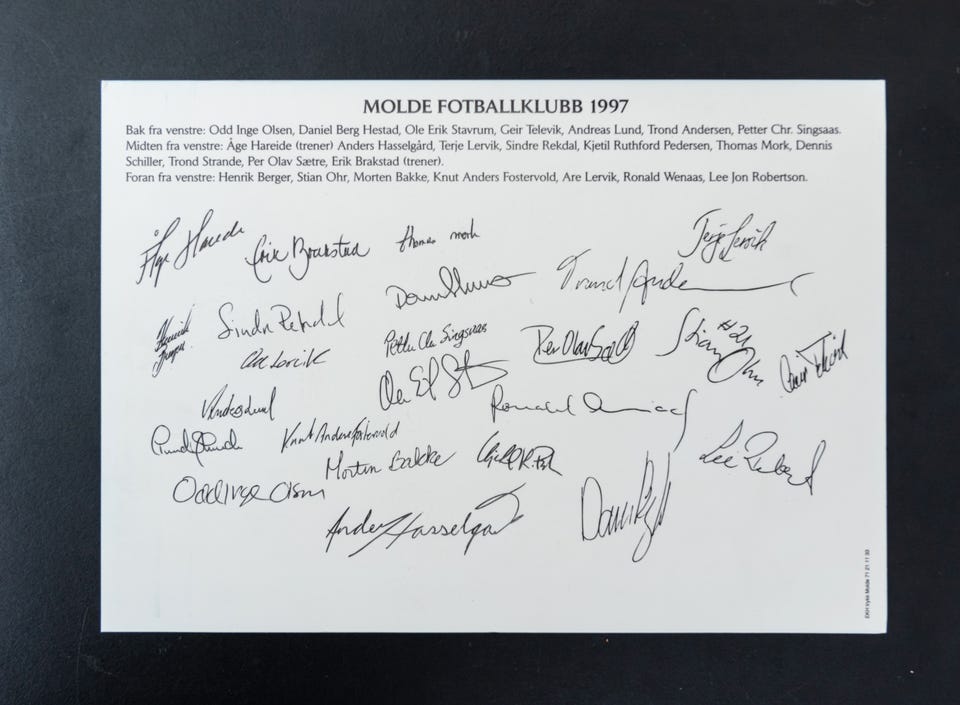 MOLDE FOTBALLKLUBB 1997
Bak fra venstre: Odd Inge Olsen, Daniel Berg Hestad, Ole Erik Stavrum, Geir Televik, Andreas Lund, Trond Andersen, Petter Chr. Singsaas.
Midten fra venstre: Åge Hareide (trener) Anders Hasselgård, Terje Lervik, Sindre Rekdal, Kjetil Ruthford Pedersen, Thomas Mork, Dennis
Schiller, Trond Strande, Per Olav Sætre, Erik Brakstad (trener).
Foran fra venstre: Henrik Berger, Stian Ohr, Morten Bakke, Knut Anders Fostervold, Are Lervik, Ronald Wenaas, Lee Jon Robertson.
Åge Hareide
Erik Brakstad
Thomas Mork
Terje Lervik
Trond Andersen
Sindre Rekdal
Petter Chr Singsaas
Per Olav Sætre
Stian Ohr
#21
Are Lervik
Knut Anders Fostervold
Morten Bakke
Odd Inge Olsen
Anders Hasselgård